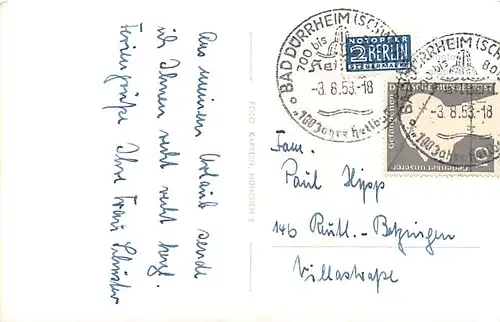 Aus meinem Urlaub sende
ich Ihnen recht recht herzl.
Feriengrüße Ihre Frau Schuster
FOTO KARSTEN MÜNCHEN 8
BAD DÜRRHEIM (SCHW
700 bis
-3.8.53.-18
100 Jahre Heilb
NOTOPFER
2 BERLIN
STEUERMARKE
DÜRRHEIM (SCH
-3.8.53.-18
100 Jahre Heilb
DEUTSCHE BUNDESPOST
Gedenket unserer
10
Fam.
Paul Hipp
146 Rutl.-Betzingen
Villastraße